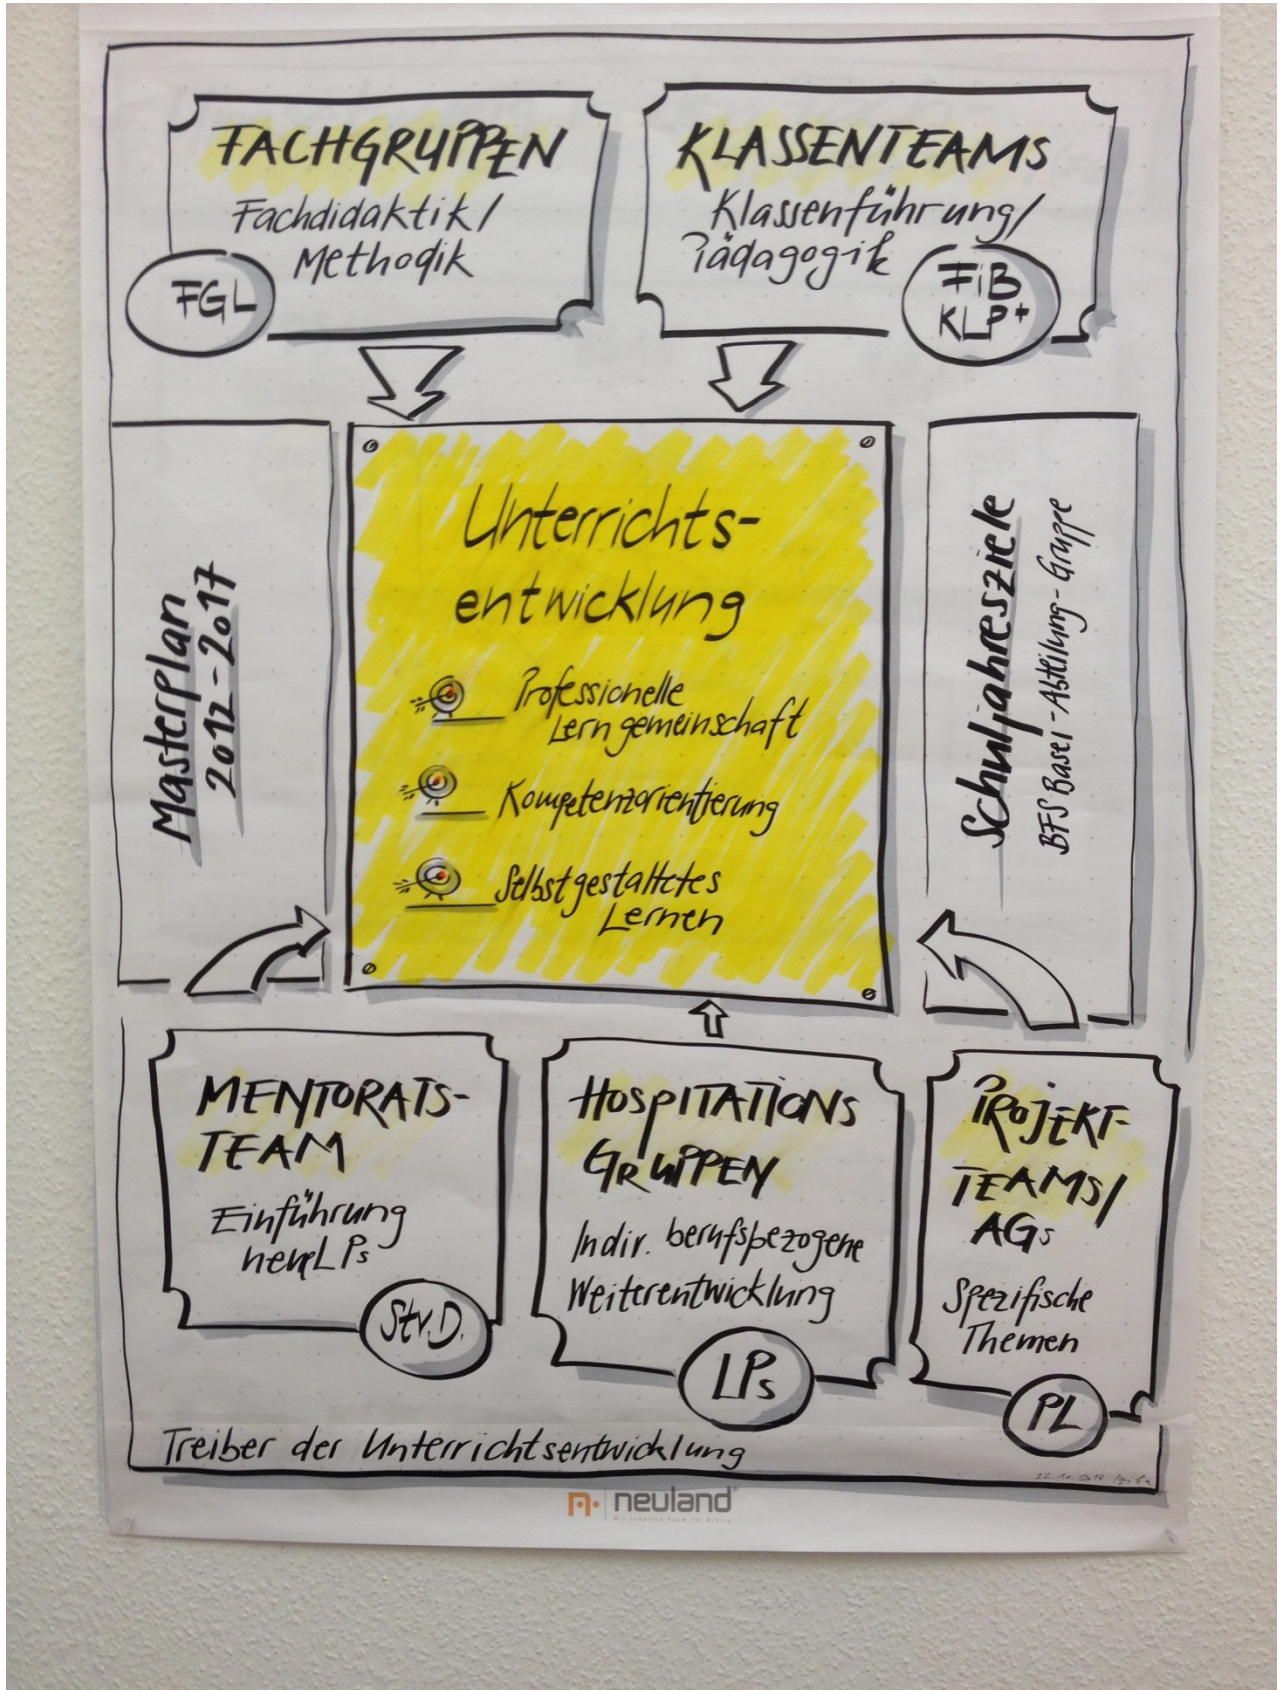 FACHGRUPPEN
Fachdidaktik/
Methodik
FGL
KLASSENTEAMS
Klassenführung/
Pädagogik
FiB
KLP+
Masterplan
2012-2017
Unterrichts-
entwicklung
Professionelle
Lerngemeinschaft
Kompetenzorientierung
Selbstgestaltetes
Lernen
Schuljahresziele
BFS Basel-Abteilung-Gruppe
MENTORATS-
TEAM
Einführung
neue LPs
Stv.D.
HOSPITATIONS
GRUPPEN
Indiv. berufsbezogene
Weiterentwicklung
LPs
PROJEKT-
TEAMS/
AGs
Spezifische
Themen
PL
Treiber der Unterrichtsentwicklung
22.10.2014
neuland
Wir schaffen Raum für Dialog